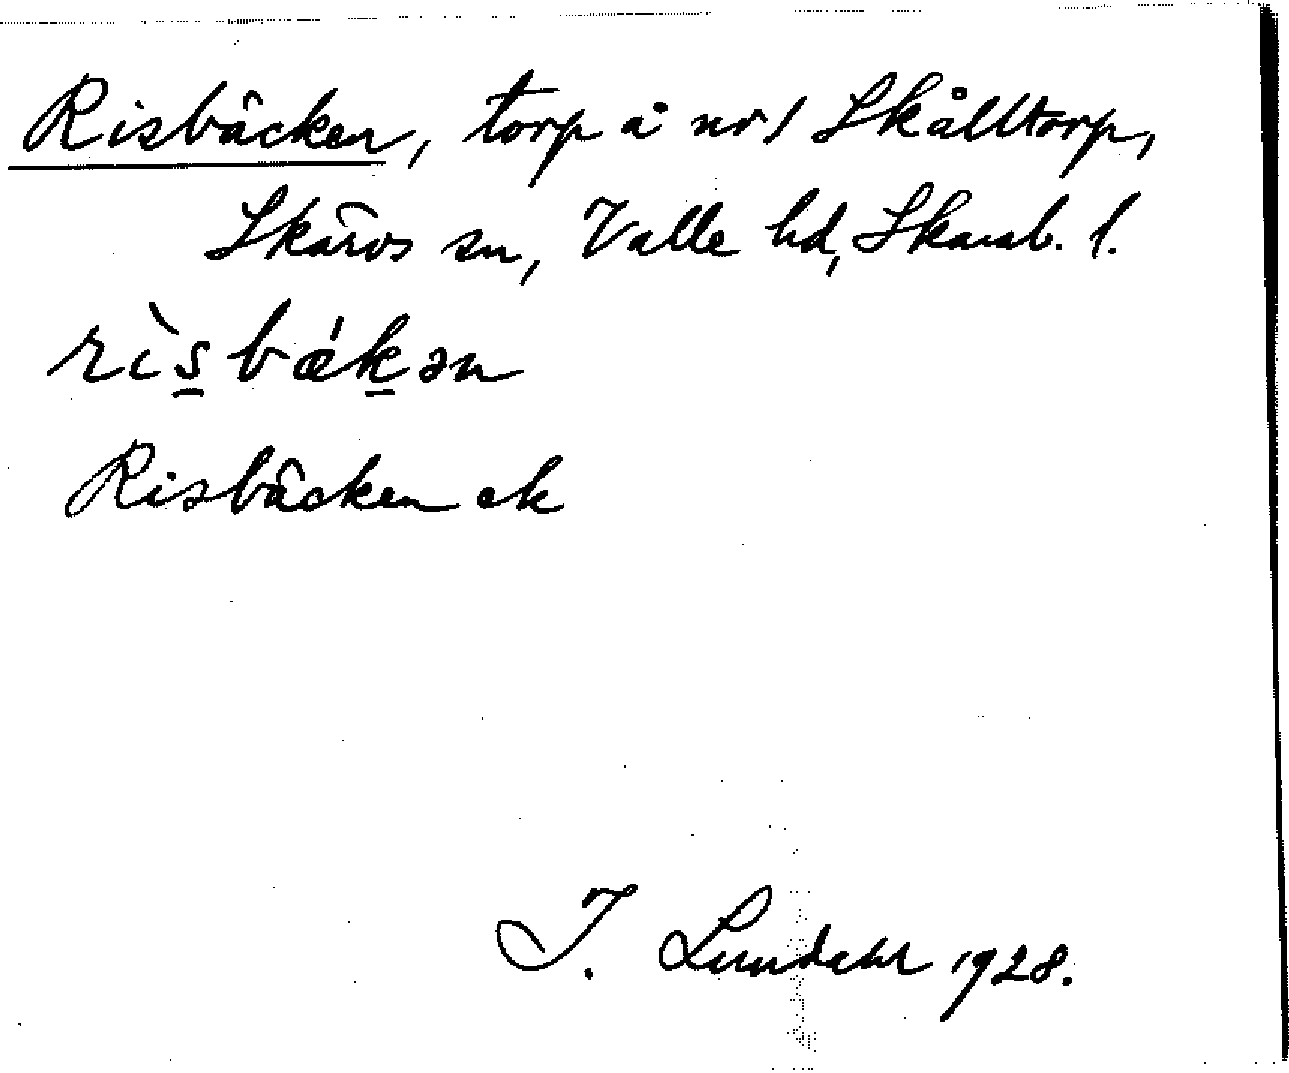 Risbäcken, torp å nr 1 Skålltorp,
Skärvs sn, Valle hd, Skarab. l.
rìs̠bǽk̠ən
Risbäcken ek
I. Lundahl 1928.